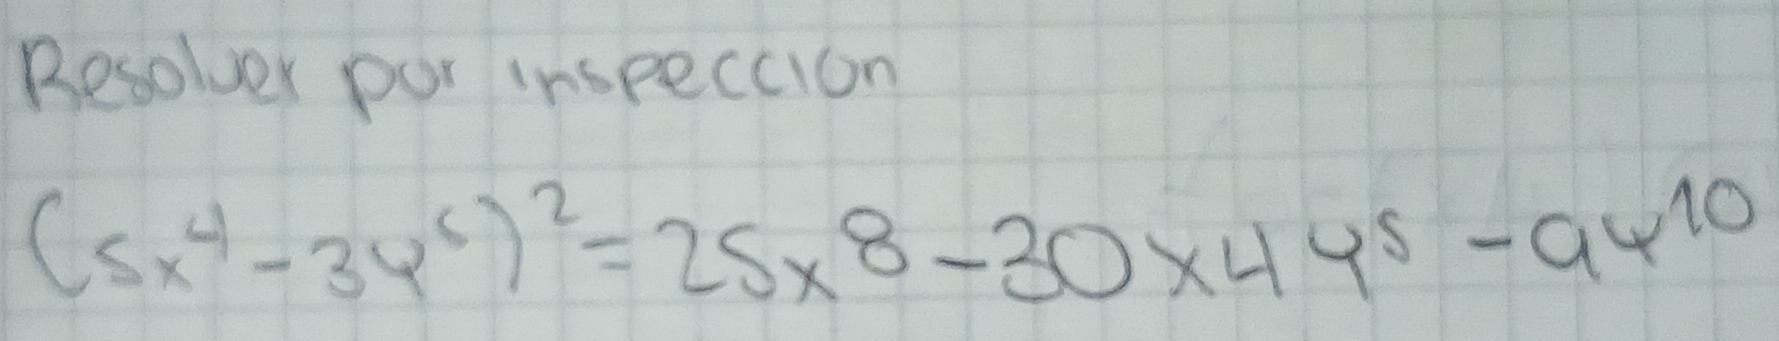 Resolver por inspeccion
(5x⁴-3y⁵)²=25x8-30x4y⁵-9y¹⁰